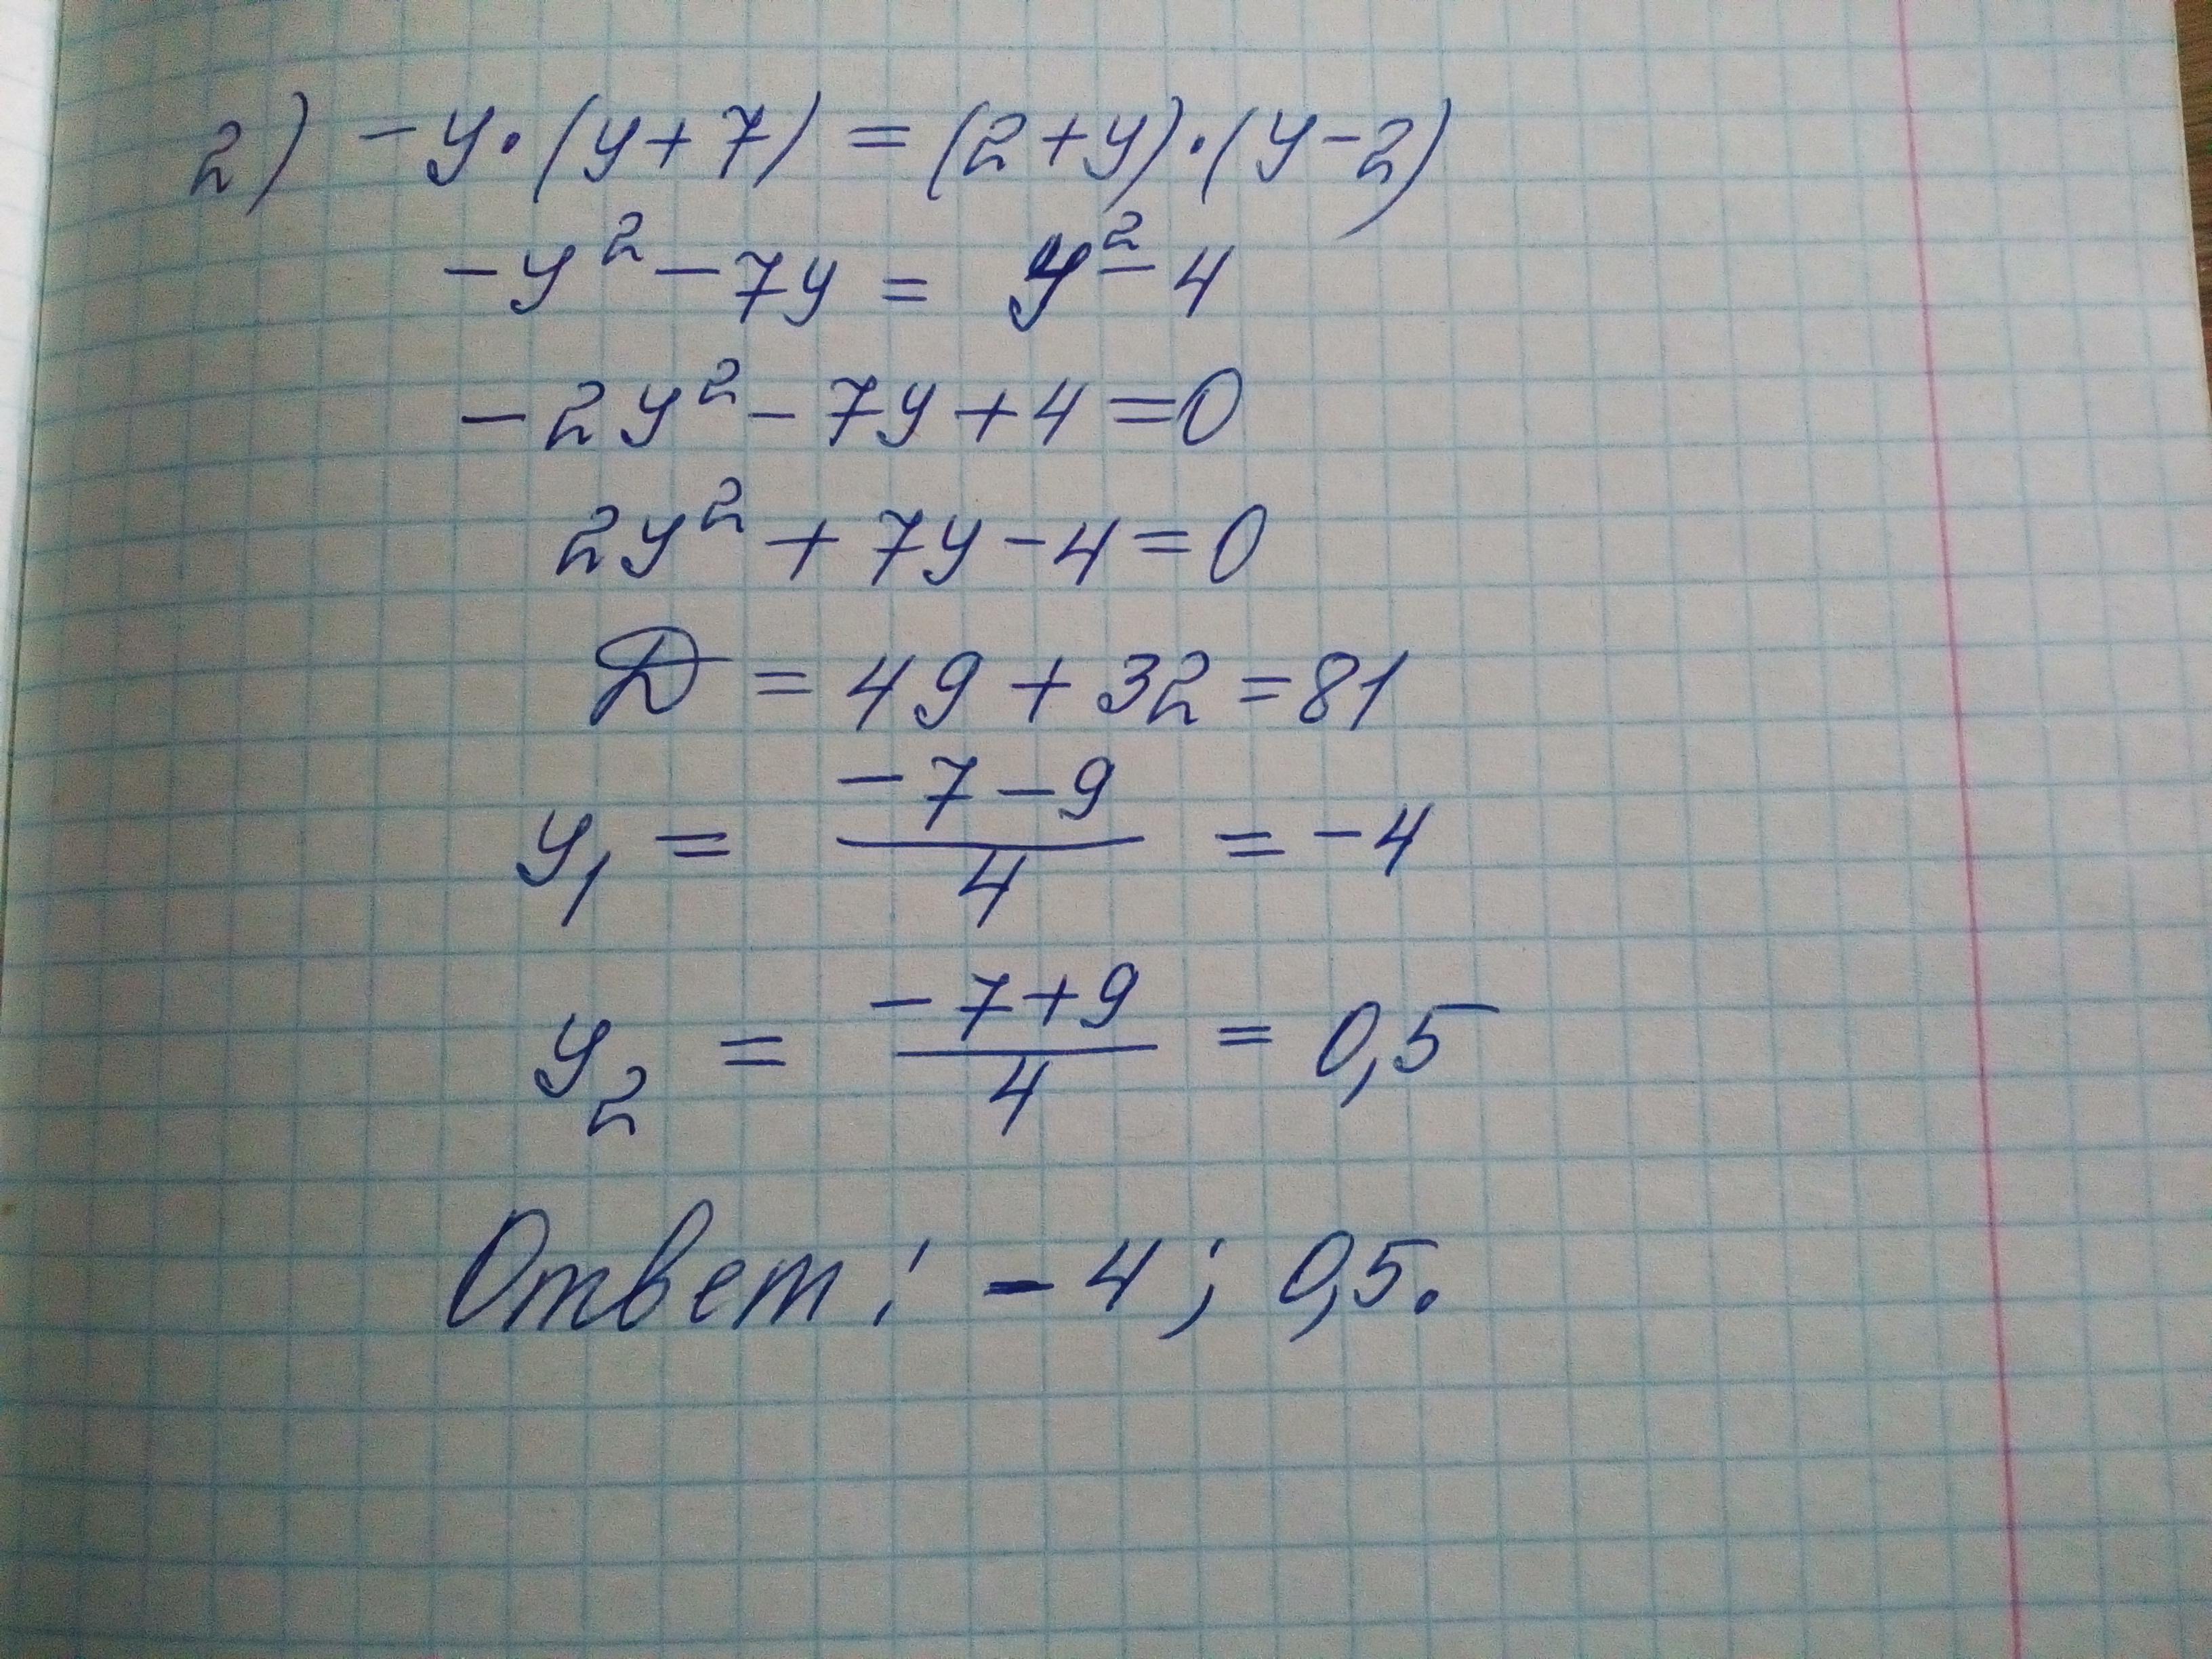 2) -y·(y+7) = (2+y)·(y-2)
-y² - 7y = y² - 4
-2y² - 7y + 4 = 0
2y² + 7y - 4 = 0
Д = 49 + 32 = 81
y₁ = (-7-9)/4 = -4
y₂ = (-7+9)/4 = 0,5
Ответ: -4; 0,5.